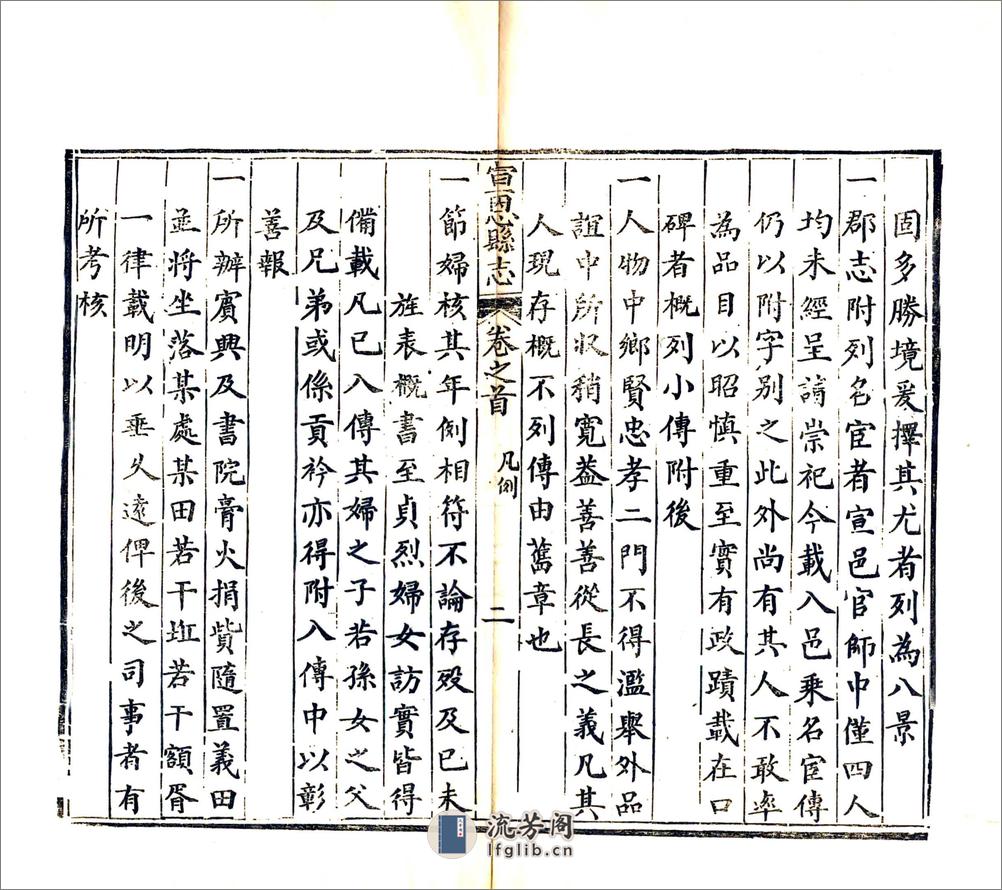 固多勝境爰擇其尤者列為八景
一郡志附列名宦者宣邑官師中僅四人
均未經呈請崇祀今載入邑乘名宦傳
仍以附字別之此外尚有其人不敢率
為品目以昭慎重至實有政蹟載在口
碑者概列小傳附後
一人物中鄉賢忠孝二門不得濫舉外品
誼中所収稍寬葢善善從長之義凡其
人現存概不列傳由舊章也
宣恩縣志
卷之首
凡例
二
一節婦核其年例相符不論存歿及已未
旌表概書至貞烈婦女訪實皆得
備載凡已入傳其婦之子若孫女之父
及兄弟或係貢衿亦得附入傳中以彰
善報
一所辦賓興及書院膏火捐貲隨置義田
並將坐落某處某田若干坵若干額胥
一律載明以垂久遠俾後之司事者有
所考核
流芳阁
lfglib.cn